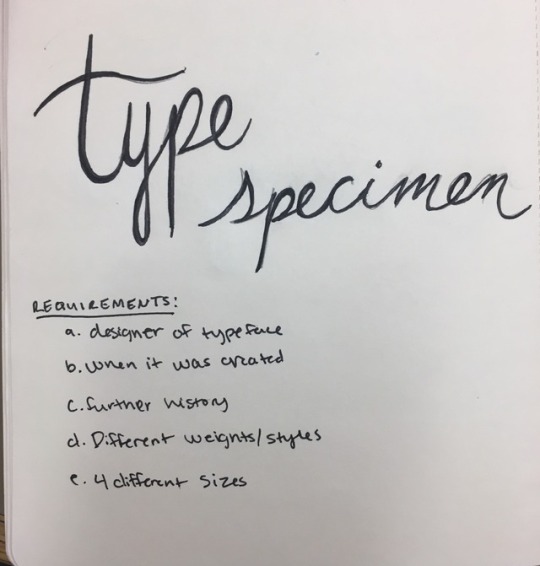 type
specimen
REQUIREMENTS:
a. designer of typeface
b. when it was created
c. further history
d. Different weights/styles
e. 4 different sizes